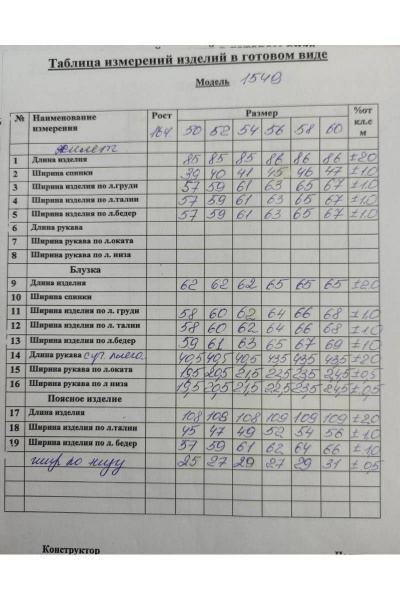 Таблица измерений изделий в готовом виде
Модель 1549
№ Наименование измерения Рост Размер %от кл.е м
164 50 52 54 56 58 60
жилет
1 Длина изделия 85 85 85 86 86 86 ±2.0
2 Ширина спинки 39 40 41 45 46 47 ±1.0
3 Ширина изделия по л.груди 57 59 61 63 65 67 ±1.0
4 Ширина изделия по л.талии 57 59 61 63 65 67 ±1.0
5 Ширина изделия по л.бедер 57 59 61 63 65 67 ±1.0
6 Длина рукава
7 Ширина рукава по л.оката
8 Ширина рукава по л. низа
Блузка
9 Длина изделия 62 62 62 65 65 65 ±2.0
10 Ширина спинки
11 Ширина изделия по л. груди 58 60 62 64 66 68 ±1.0
12 Ширина изделия по л. талии 58 60 62 64 66 68 ±1.0
13 Ширина изделия по л.бедер 59 61 63 65 67 69 ±1.0
14 Длина рукава 40,5 40,5 40,5 43,5 43,5 43,5 ±2.0
15 Ширина рукава по л.оката 19,5 20,5 21,5 22,5 23,5 24,5 ±0,5
16 Ширина рукава по л низа 19,5 20,5 21,5 22,5 23,5 24,5 ±0,5
Поясное изделие
17 Длина изделия 108 108 108 109 109 109 ±2.0
18 Ширина изделия по л.талии 45 47 49 52 54 56 ±1.0
19 Ширина изделия по л. бедер 57 59 61 62 64 66 ±1.0
шир по низу 25 27 29 27 29 31 ±0,5
Конструктор